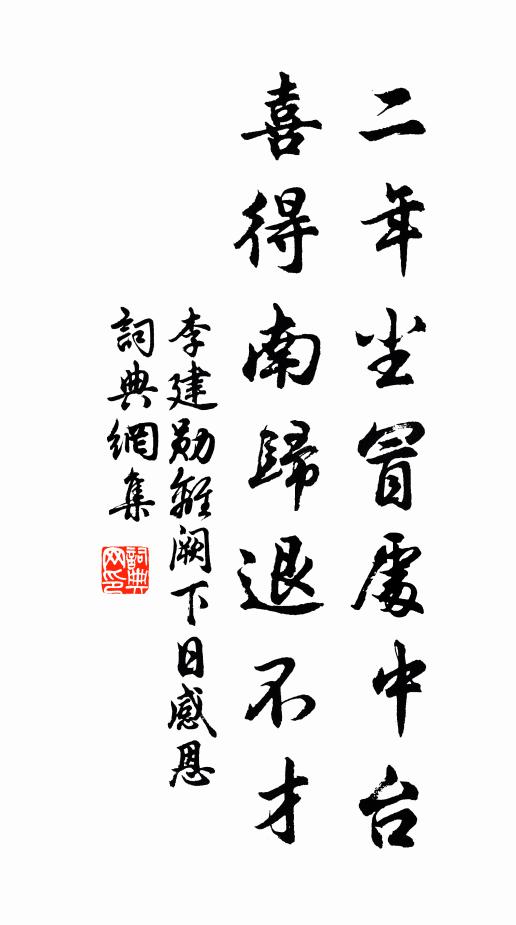 二年尘冒處中台
喜得南歸退不才
李建勋離闕下日感恩
詞典網集
詞典
网印